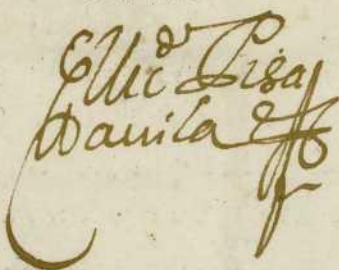 El lic.do Pisa
Davila